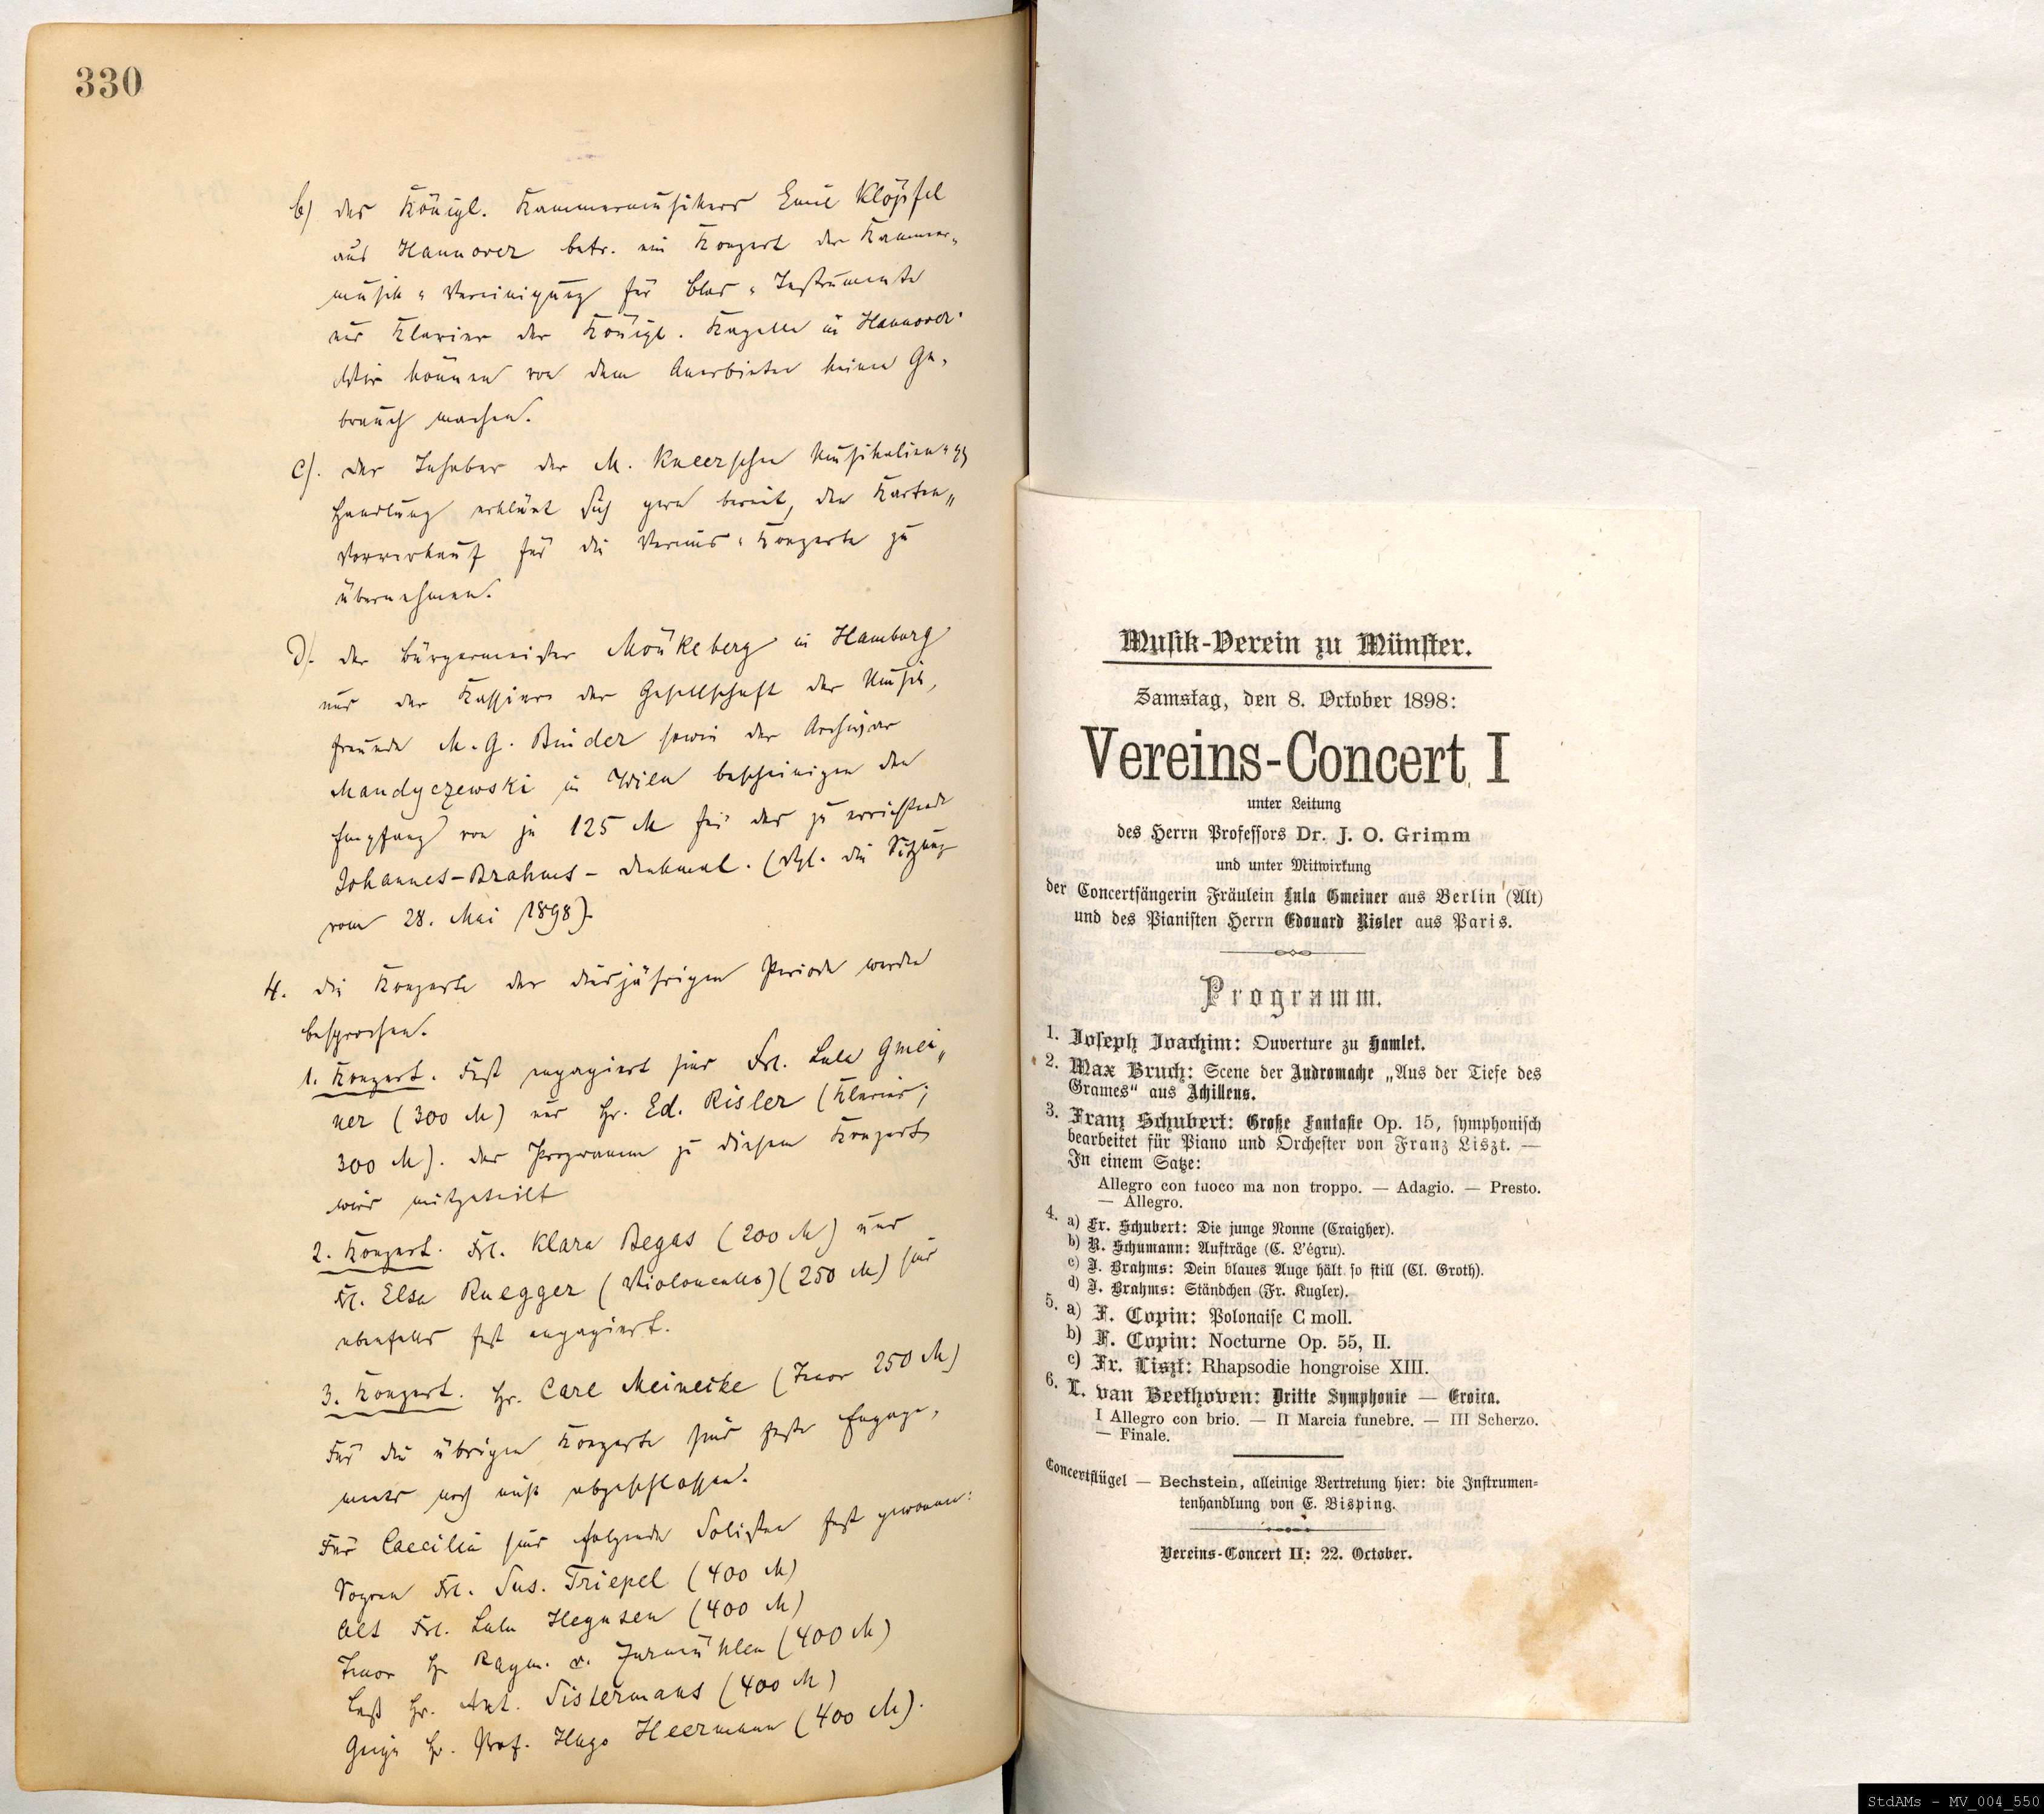 330
b) des Königl. Kammermusikers Emil Klöpfel
aus Hannover betr. ein Konzert der Kammer-
musik-Vereinigung für Blas-Instrumente
und Klavier der Königl. Kapelle in Hannover.
Wir können von dem Anerbieten keinen Ge-
brauch machen.
c). der Inhaber der M. Kneerschen Musikalien-
Handlung erklärt sich gern bereit, den Karten-
Vorverkauf für die Vereins-Konzerte zu
übernehmen.
d). der Bürgermeister Mönkeberg in Hamburg
und der Kassierer der Gesellschaft der Musik-
freunde M. G. Binder sowie der Archivar
Mandyczewski in Wien bescheinigen den
Empfang von je 125 M für das zu errichtende
Johannes-Brahms-Denkmal. (Vgl. die Sitzung
vom 28. Mai 1898).
4. Die Konzerte der diesjährigen Periode werden
besprochen.
1. Konzert. Fest engagiert sind Frl. Lula Gmei-
ner (300 M) und Hr. Ed. Risler (Klavier;
300 M). Das Programm zu diesem Konzert
wird mitgeteilt
2. Konzert. Frl. Klara Begas (200 M) und
Frl. Elsa Ruegger (Violoncello) (250 M) sind
ebenfalls fest engagiert.
3. Konzert. Hr. Carl Meinecke (Tenor 250 M)
Für die übrigen Konzerte sind feste Engage-
ments noch nicht abgeschlossen.
Für Caecilia sind folgende Solisten fest gewonnen:
Sopran Frl. Sus. Triepel (400 M)
Alt Frl. Lula (400 M)
Tenor Hr. Raym. v. Zurmühlen (400 M)
Baß Hr. Ant. Sistermans (400 M)
Geige Hr. Prof. Hugo Heermann (400 M).
Musik-Verein zu Münster.
Samstag, den 8. October 1898:
Vereins-Concert I
unter Leitung
des Herrn Professors Dr. J. O. Grimm
und unter Mitwirkung
der Concertsängerin Fräulein Lula Gmeiner aus Berlin (Alt)
und des Pianisten Herrn Edouard Risler aus Paris.
Programm.
1. Joseph Joachim: Ouverture zu Hamlet.
2. Max Bruch: Scene der Andromache „Aus der Tiefe des
Grames“ aus Achilleus.
3. Franz Schubert: Große Fantasie Op. 15, symphonisch
bearbeitet für Piano und Orchester von Franz Liszt. —
In einem Satze:
Allegro con fuoco ma non troppo. — Adagio. — Presto.
— Allegro.
4. a) Fr. Schubert: Die junge Nonne (Craigher).
b) R. Schumann: Aufträge (C. L'égru).
c) J. Brahms: Dein blaues Auge hält so still (Cl. Groth).
d) J. Brahms: Ständchen (Fr. Kugler).
5. a) F. Copin: Polonaise C moll.
b) F. Copin: Nocturne Op. 55, II.
c) Fr. Liszt: Rhapsodie hongroise XIII.
6. L. van Beethoven: Dritte Symphonie — Eroica.
I Allegro con brio. — II Marcia funebre. — III Scherzo.
— Finale.
Concertflügel — Bechstein, alleinige Vertretung hier: die Instrumen-
tenhandlung von E. Bisping.
Vereins-Concert II: 22. October.
StdAMs - MV_004_550